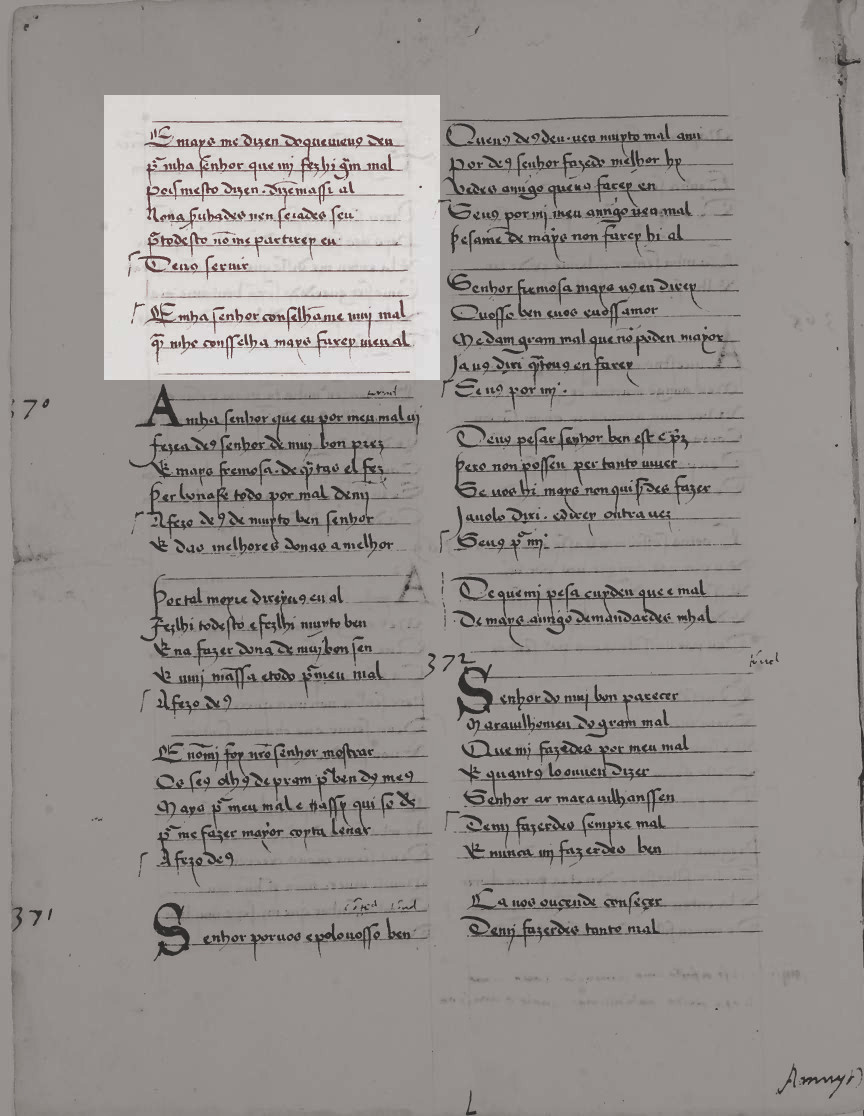 E mays me dizen do que uieno den
pᵃ mha senhor que mi fez hi gᵃm mal
pois mesto dizen. dizemassi al
Nona
todesto nōme partirey eu
Deuo seruir
E mha senhor conselhāme muj mal
q̄ mhe consselha mays farey uieu al
370
A mha senhor que eu por meu mal uj
fezea deꝯ senhor de muj bon prez
E mays fremosa. de el fez
todo por mal demj
A fezo deꝯ de muyto ben senhor
E das melhores donas a melhor
A
Por tal moyre en al
Fezlhi todesto e fezlhi muyto ben
E na fazer dona de muj bon sen
E muj māssa e todo pᵒmeu mal
A fezo deꝯ
E nōmj foy nr̄o senhor mostrar
Os seꝯ olhꝯ de pram pᵒ ben dꝯ meꝯ
Mays pᵒ meu mal e assy qui so dē
pᵒ me fazer mayor coyta leuar
A fezo deꝯ
371
Senhor por uos e polo uosso ben
Que uꝯ deꝯ deu. uen muyto mal amj
Por deꝯ senhor fazede melhor hy
Vedes amigo que uꝯ farey en
Se uꝯ por mi meu amigo uen mal
Pesamē de mays non farey hi al
Senhor fremosa mays uꝯ en direy
Ouosso ben euos euossamor
Me dam gram mal que nō poden mayor
Ja uꝯ dixi q̄ uꝯ en farey
Se uꝯ por mi.
Deuꝯ pesar senhor ben est e
Pero non possen per tanto uiuer
Se uos hi mays non fazer
Ja uolo dixi. e direy outra uez
Se uꝯ pᵒ mj.
De que mi pesa cuyden que e mal
De mays amigo demandardes mhal
372
Senhor do muj bon parecer
Marauilhomeu do gram mal
Que mi fazedes por meu mal
E quantꝯ lo ouuen dizer
Senhor ar marauilhanssen
Demj fazerdes sempre mal
E nunca mj fazerdes ben
Ca uos
Demj fazerdes tanto mal